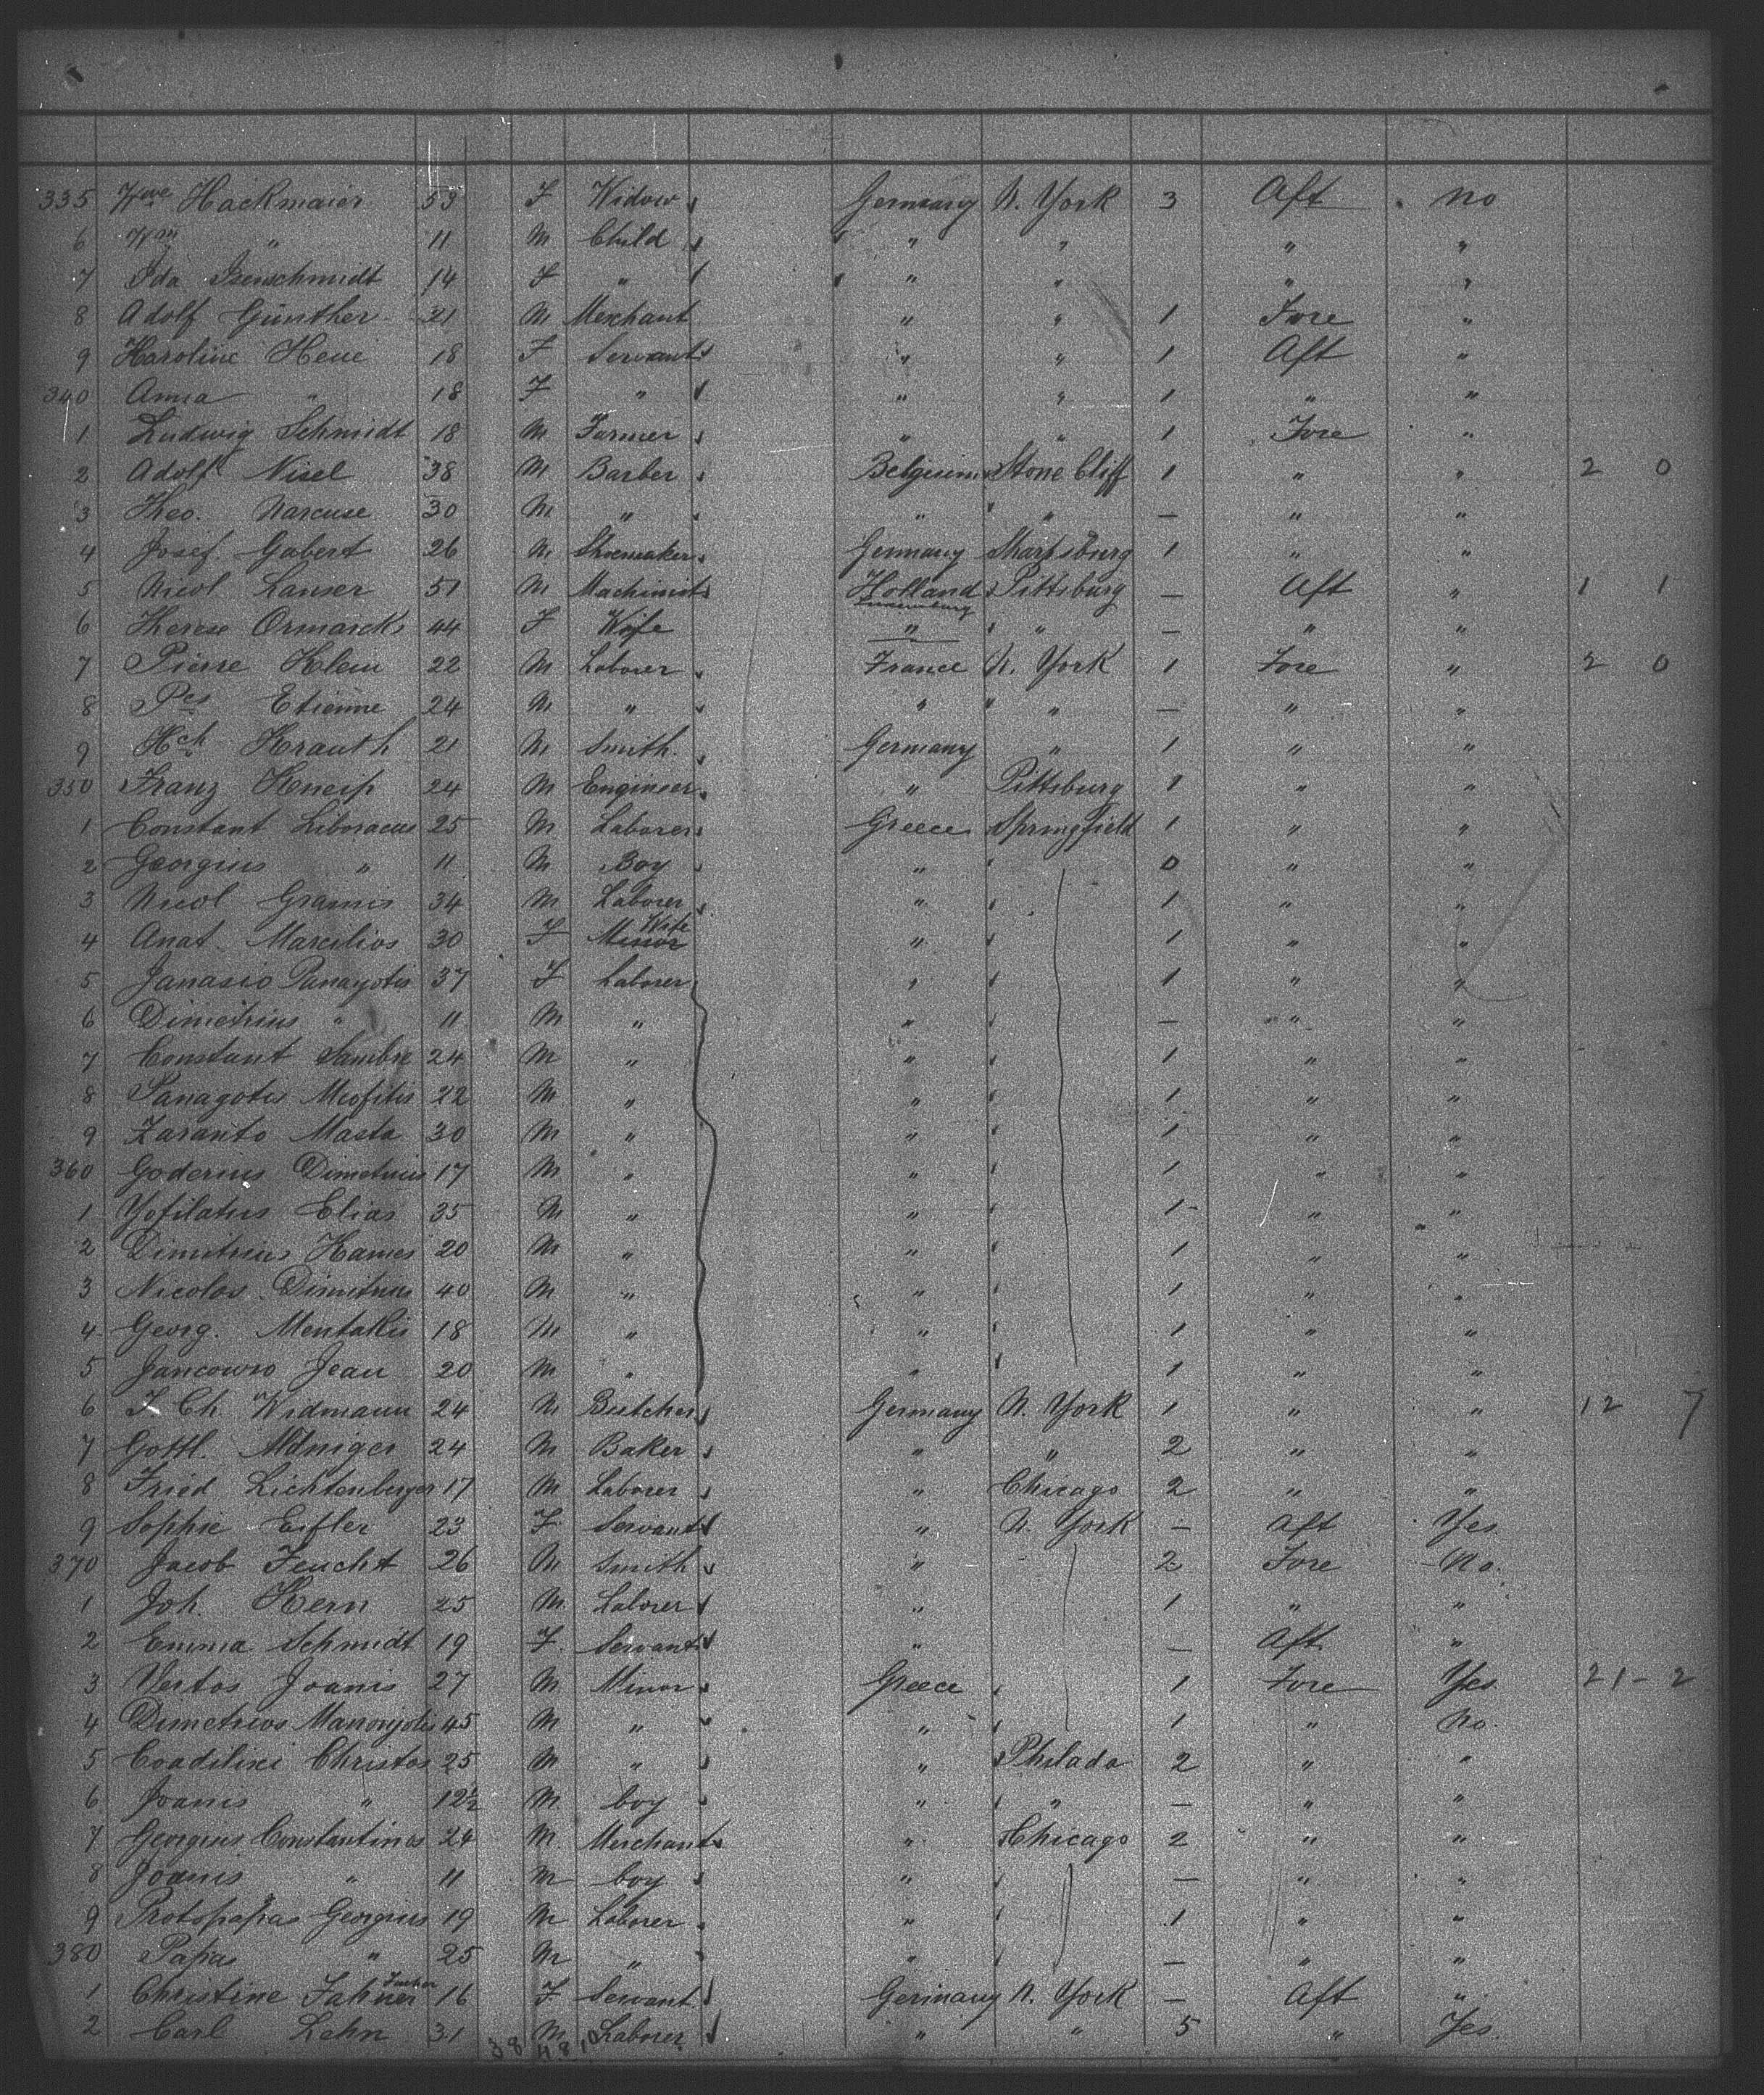 335 Wwe Hackmaier 53 F Widow Germany N. York 3 Aft no
6 Wm " 11 M Child " " " "
7 Ida Isenschmidt 14 F " " " " "
8 Adolf Günther 21 M Merchant " " 1 Fore "
9 Karoline Heue 18 F Servant " " 1 Aft "
340 Anna " 18 F " " " 1 " "
1 Ludwig Schmidt 18 M Farmer " " 1 Fore "
2 Adolf Nisel 38 M Barber Belgium Stone Cliff 1 " " 2 0
3 Theo. Narcuse 30 M " " " — " "
4 Josef Gabert 26 M Shoemaker Germany Sharpsburg 1 " "
5 Nicol Lanser 51 M Machinist Holland Luxemburg Pittsburg — Aft " 1 1
6 Therese Ormarck 44 F Wife " " — " "
7 Pierre Klein 22 M Laborer France N. York 1 Fore " 2 0
8 Pes Etienne 24 M " " " — " "
9 Hch Krauth 21 M Smith Germany " 1 " "
350 Franz Kneip 24 M Engineer " Pittsburg 1 " "
1 Constant Liboracus 25 M Laborer Greece Springfield 1 " "
2 Georgius " 11 M Boy " 0 " "
3 Nicol Gramis 34 M Laborer " 1 " "
4 Anat. Marcilios 30 F Minor Wife " 1 " "
5 Janasio Panayotis 37 F Laborer " 1 " "
6 Dimetrius " 11 M " " — " "
7 Constant Sambre 24 M " " 1 " "
8 Panagotis Miofilis 22 M " " 1 " "
9 Zaranto Masta 30 M " " 1 " "
360 Goderius Dimetrius 17 M " " 1 " "
1 Yofilatus Elias 35 M " " 1 " "
2 Dimitrius Kames 20 M " " 1 " "
3 Nicolas Dimitrius 40 M " " 1 " "
4 Georg. Mentakis 18 M " " 1 " "
5 Jancowro Jean 20 M " " 1 " "
6 J. Ch. Widmann 24 M Butcher Germany N. York 1 " " 12 7
7 Gottl. 24 M Baker " " 2 " "
8 Fried Lichtenberger 17 M Laborer " Chicago 2 " "
9 Sophie Eifler 23 F Servant " N. York — Aft Yes
370 Jacob Feucht 26 M Smith " 2 Fore No.
1 Joh. Kern 25 M Laborer " 1 " "
2 Emma Schmidt 19 F Servant " — Aft "
3 Vertos Joanis 27 M Minor Greece 1 Fore Yes 21 - 2
4 Dimetrios Manoyotis 45 M " " 1 " No.
5 Coadilixi Christos 25 M " " Philada 2 " "
6 Joanis " 12½ M boy " " — " "
7 Georgius Constantinos 24 M Merchant " Chicago 2 " "
8 Joanis " 11 M boy " — " "
9 Protopapas Georgius 19 M Laborer " 1 " "
380 Papas " 25 M " " — " "
1 Christine Fahner 16 F Servant Germany N. York — Aft "
2 Carl Lehn 31 M Laborer " " 5 " Yes.
38 48 10